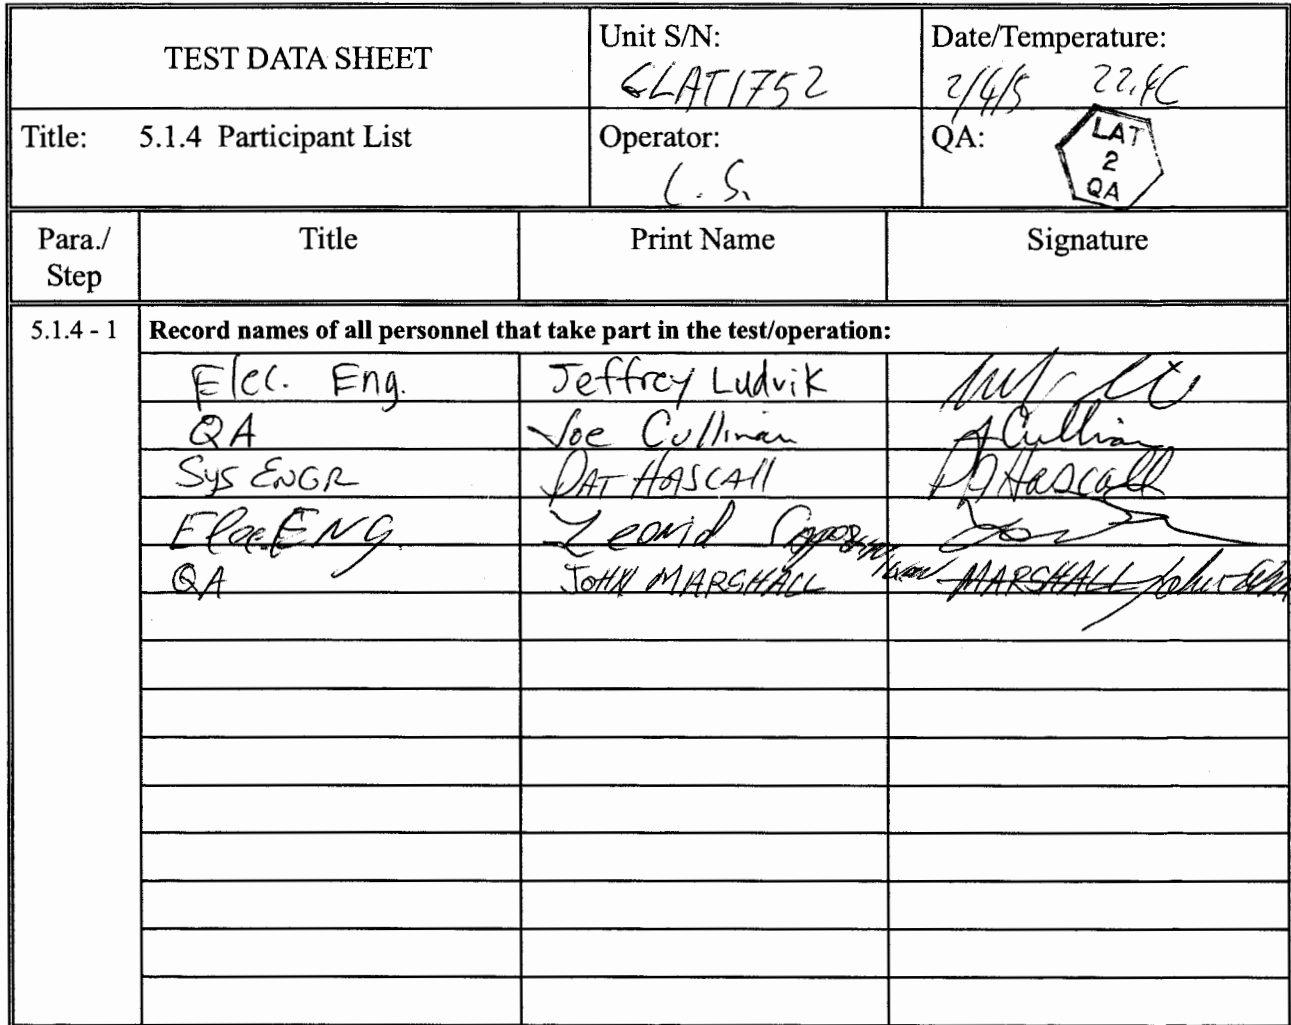 TEST DATA SHEET
Unit S/N:
GLAT1752
Date/Temperature:
2/4/5
Title: 5.1.4 Participant List
Operator:
L. S.
QA:
LAT
2
QA
Para./
Step
Title
Print Name
Signature
5.1.4 - 1 Record names of all personnel that take part in the test/operation:
Elec. Eng. Jeffrey Ludvik
QA Joe Cullinan JCullinan
Sys ENGR PAT HASCALL PAHascall
Elec. ENG Leonid
QA JOHN MARSHALL MARSHALL John